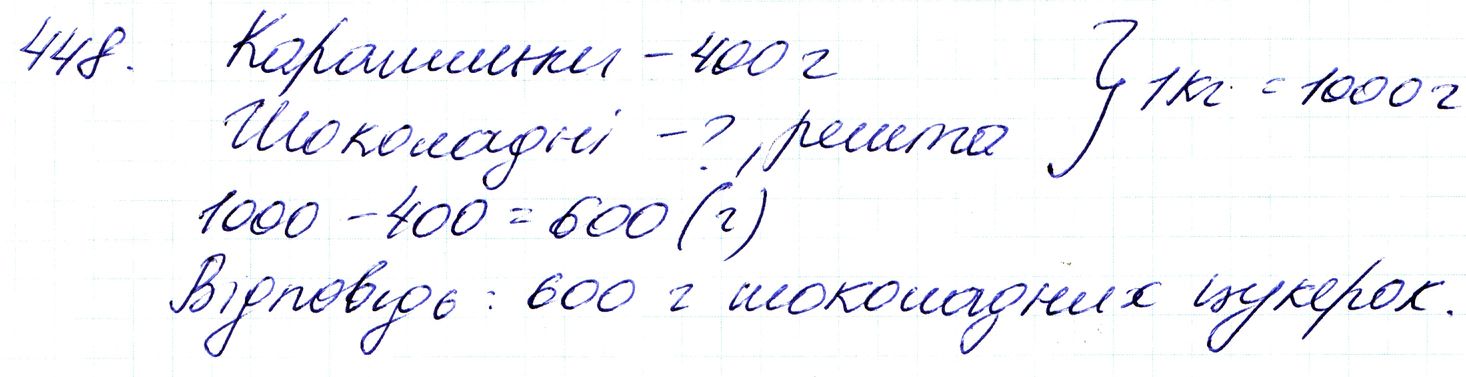 448. Карамельки - 400 г } 1 кг = 1000 г
Шоколадні - ?, решта
1000 - 400 = 600 (г)
Відповідь: 600 г шоколадних цукерок.